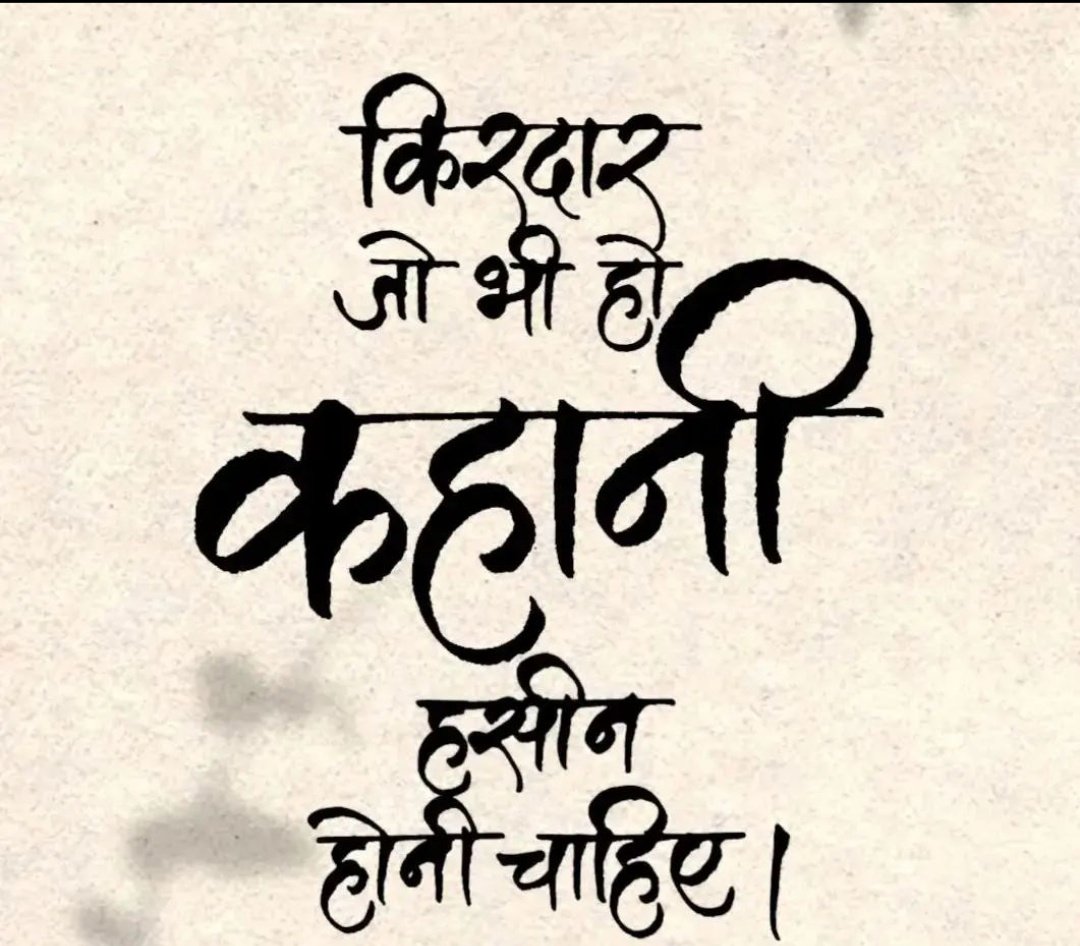 किरदार
जो भी हो
कहानी
हसीन
होनी चाहिए।